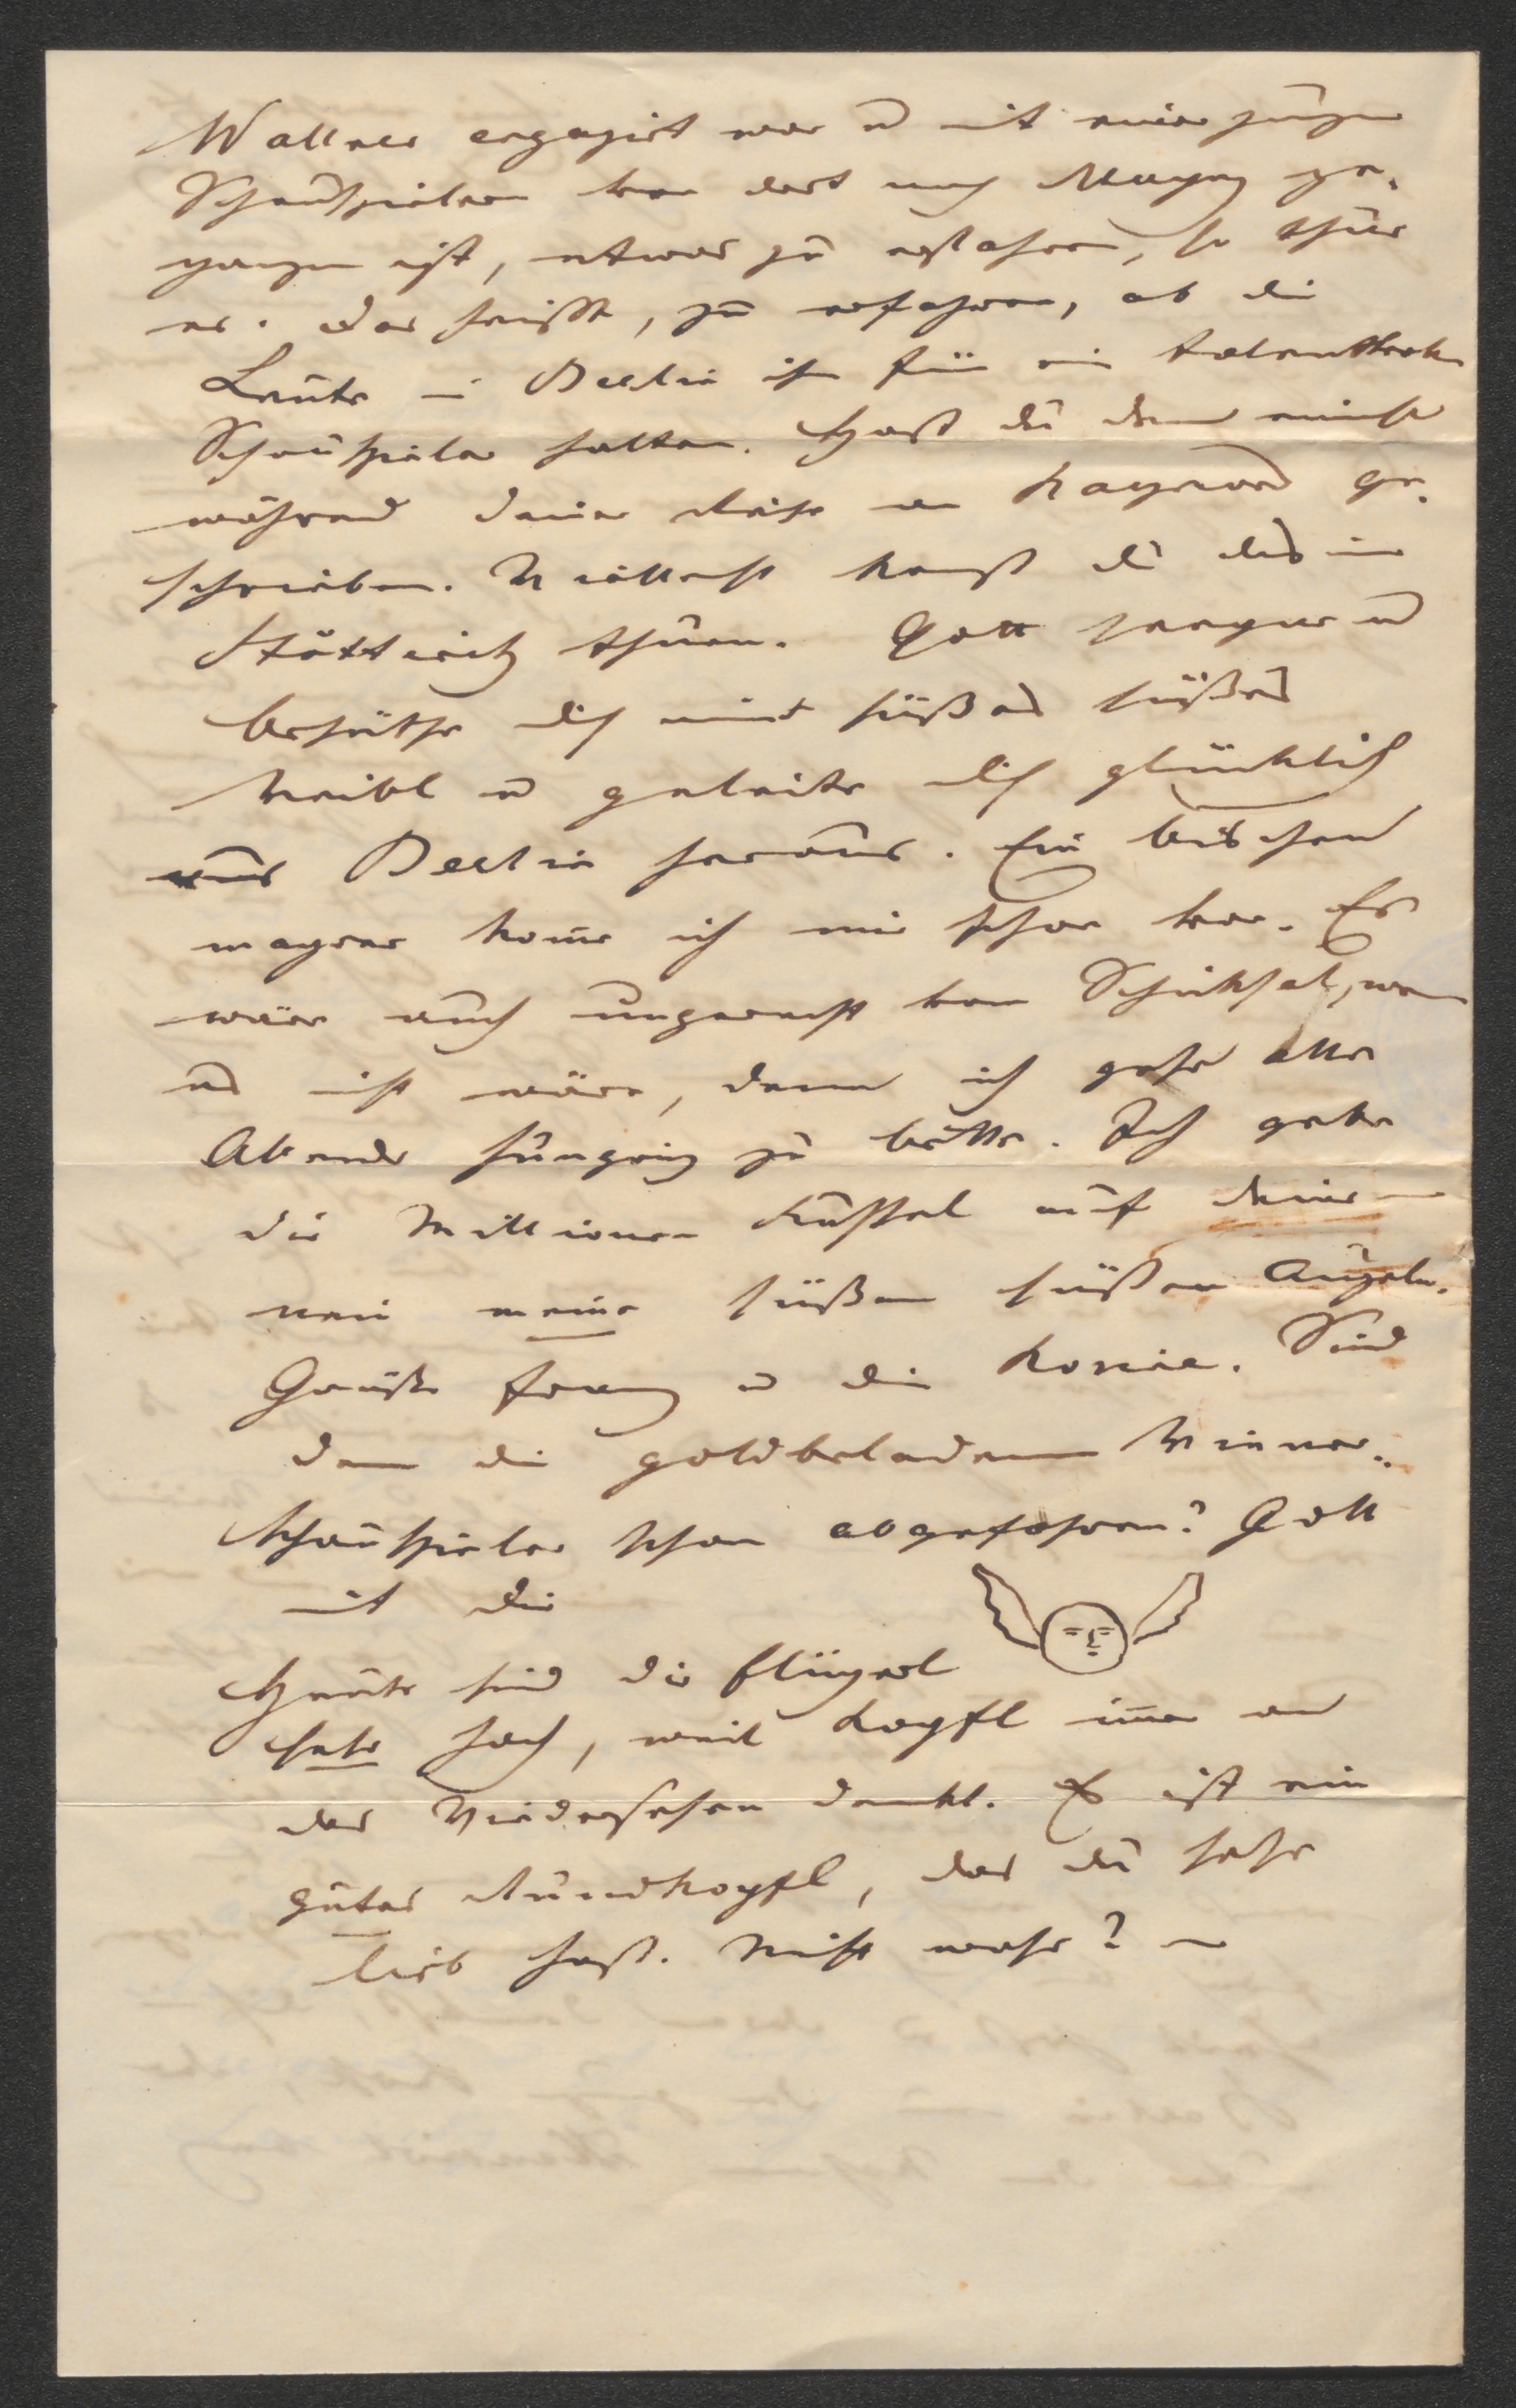 Wallner engagirt war u mit einer jungen
Schauspielerin von dort nach Maynz ge-
gangen ist, etwas zu erfahren, so thue
es. Das heißt, zu erfahren, ob die
Leute in Berlin ihn für ein talentvollen
Schauspieler halten. Hast du denn einmal
während deiner Reise an Raymond ge-
schrieben. Vielleicht kannst du das in
Stötteritz thuen. Gott seegne u
behüthe dich mein süßes süßes
Weibl u geleite dich glücklich
aus Berlin heraus. Ein bischen
magrer kome ich mir schon vor. Es
wäre auch ungerecht vom Schicksal, wenn
es nicht wäre, denn ich gehe alle
Abende hungrig zu bette. Ich gebe
dir Millionen Kussel auf deine
nein meine süßen süßen Augeln.
Grüße Franz u die Rosie. Sind
denn die goldbeladenen Wiener-
schauspieler schon abgefahren? Gott
mit dir
Heute sind die Flügerl
sehr hoch, weil Kopfl imer an
das Wiedersehen denkt. Es ist ein
gutes Rundkopfl, das du sehr
lieb hast. Nicht wahr? –